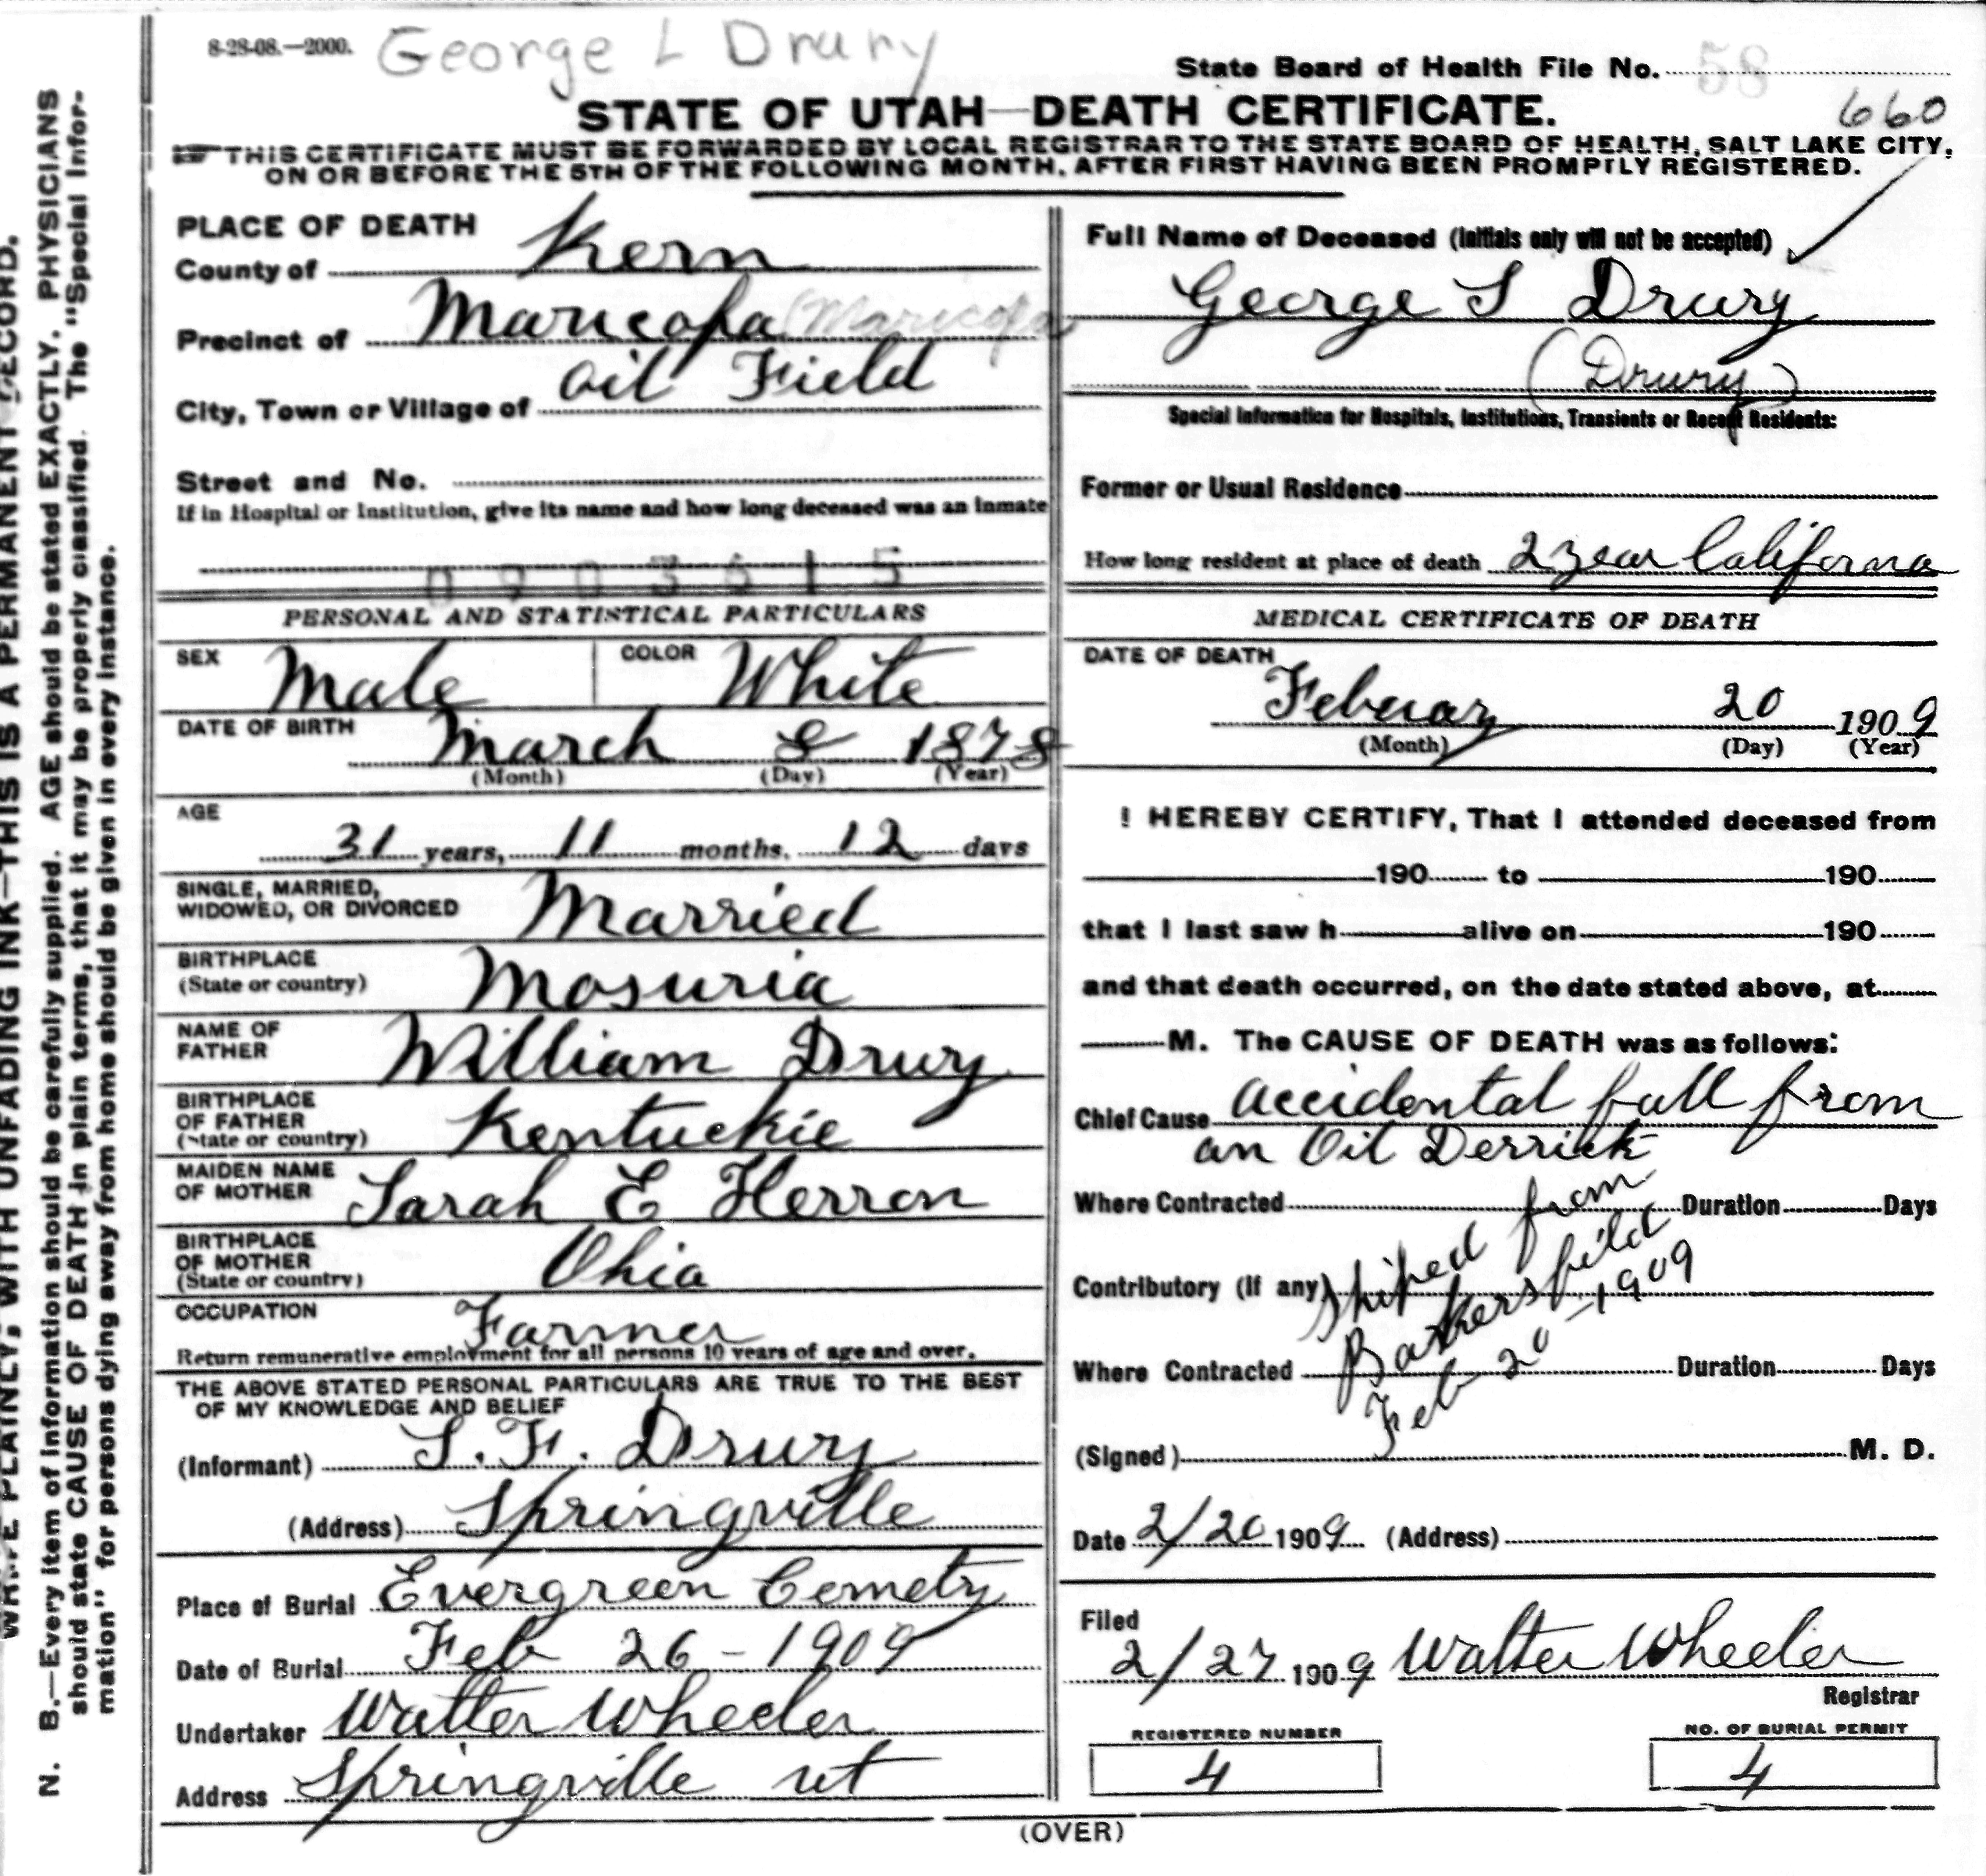 8-28-08.—2000.
George L Drury
State Board of Health File No. 58
STATE OF UTAH—DEATH CERTIFICATE.
660
THIS CERTIFICATE MUST BE FORWARDED BY LOCAL REGISTRAR TO THE STATE BOARD OF HEALTH, SALT LAKE CITY,
ON OR BEFORE THE 5TH OF THE FOLLOWING MONTH, AFTER FIRST HAVING BEEN PROMPTLY REGISTERED.
PLACE OF DEATH
County of Kern
Precinct of Maricopa (Maricopa
City, Town or Village of Oil Field
Street and No.
If in Hospital or Institution, give its name and how long deceased was an inmate
0903615
PERSONAL AND STATISTICAL PARTICULARS
SEX Male COLOR White
DATE OF BIRTH March 8 1878
(Month) (Day) (Year)
AGE
31 years, 11 months, 12 days
SINGLE, MARRIED,
WIDOWED, OR DIVORCED Married
BIRTHPLACE
(State or country) Mosuria
NAME OF
FATHER William Drury
BIRTHPLACE
OF FATHER
(State or country) Kentuckie
MAIDEN NAME
OF MOTHER Sarah E Herron
BIRTHPLACE
OF MOTHER
(State or country) Ohio
OCCUPATION Farmer
Return remunerative employment for all persons 10 years of age and over.
THE ABOVE STATED PERSONAL PARTICULARS ARE TRUE TO THE BEST
OF MY KNOWLEDGE AND BELIEF
(Informant) S. F. Drury
(Address) Springville
Place of Burial Evergreen Cemety
Date of Burial Feb 26 - 1909
Undertaker Walter Wheeler
Address Springville ut
Full Name of Deceased (Initials only will not be accepted)
George S Drury
(Drury)
Special Information for Hospitals, Institutions, Transients or Recent Residents:
Former or Usual Residence
How long resident at place of death 2 year California
MEDICAL CERTIFICATE OF DEATH
DATE OF DEATH
Februay 20 1909
(Month) (Day) (Year)
I HEREBY CERTIFY, That I attended deceased from
190 to 190
that I last saw h alive on 190
and that death occurred, on the date stated above, at
M. The CAUSE OF DEATH was as follows:
Chief Cause accidental fall from
an Oil Derrick
Where Contracted Duration Days
Contributory (If any)
Where Contracted Duration Days
Shiped from
Bakersfield
Feb 20-1909
(Signed) M. D.
Date 2/20 1909 (Address)
Filed
2/27 1909 Walter Wheeler
Registrar
REGISTERED NUMBER
4
NO. OF BURIAL PERMIT
4
(OVER)
WRITE PLAINLY, WITH UNFADING INK—THIS IS A PERMANENT RECORD.
N. B.—Every item of information should be carefully supplied. AGE should be stated EXACTLY. PHYSICIANS
should state CAUSE OF DEATH in plain terms, that it may be properly classified. The "Special Infor-
mation" for persons dying away from home should be given in every instance.